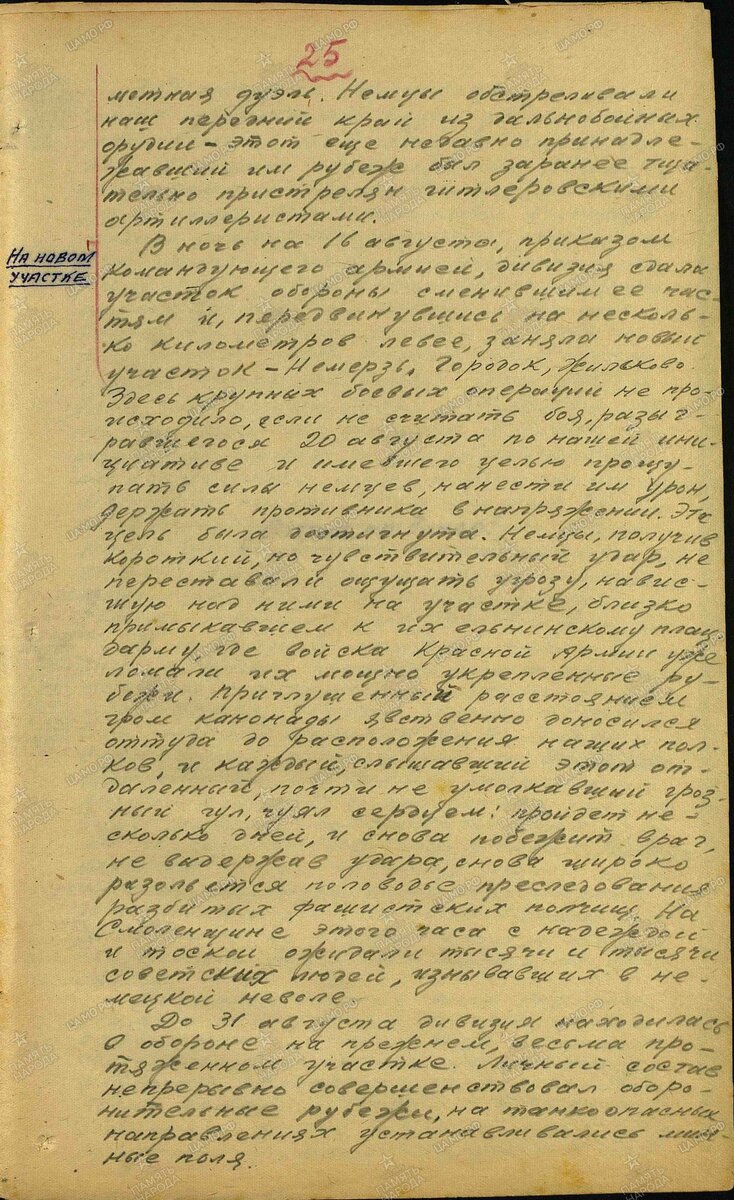 25
метная дуэль. Немцы обстреливали
наш передний край из дальнобойных
орудий – этот еще недавно принадле-
жавший им рубеж был заранее тща-
тельно пристрелян гитлеровскими
артиллеристами.
На новом
участке
В ночь на 16 августа, приказом
командующего армией, дивизия сдала
участок обороны сменившим ее час-
тям и, передвинувшись на несколь-
ко километров левее, заняла новый
участок – Немерзь, Городок, Жильково.
Здесь крупных боевых операций не про-
исходило, если не считать боя, разыг-
равшегося 20 августа по нашей ини-
циативе и имевшего целью прощу-
пать силы немцев, нанести им урон,
держать противника в напряжении. Эта
цель была достигнута. Немцы, получив
короткий, но чувствительный удар, не
переставали ощущать угрозу, навис-
шую над ними на участке, близко
примыкавшем к их ельнинскому плац
дарму, где войска Красной Армии уже
ломали их мощно укрепленные ру-
бежи. Приглушенный расстоянием
гром канонады явственно доносился
оттуда до расположения наших пол-
ков, и каждый, слышавший этот от-
даленный, почти не умолкавший гроз-
ный гул, чуял сердцем: пройдет не-
сколько дней, и снова побежит враг,
не выдержав удара, снова широко
разольется половодье преследования
разбитых фашистских полчищ. На
Смоленщине этого часа с надеждой
и тоской ожидали тысячи и тысячи
советских людей, изнывавших в не-
мецкой неволе.
До 31 августа дивизия находилась
в обороне на прежнем, весьма про-
тяженном участке. Личный состав
непрерывно совершенствовал оборо-
нительные рубежи, на танкоопасных
направлениях устанавливались мин-
ные поля.